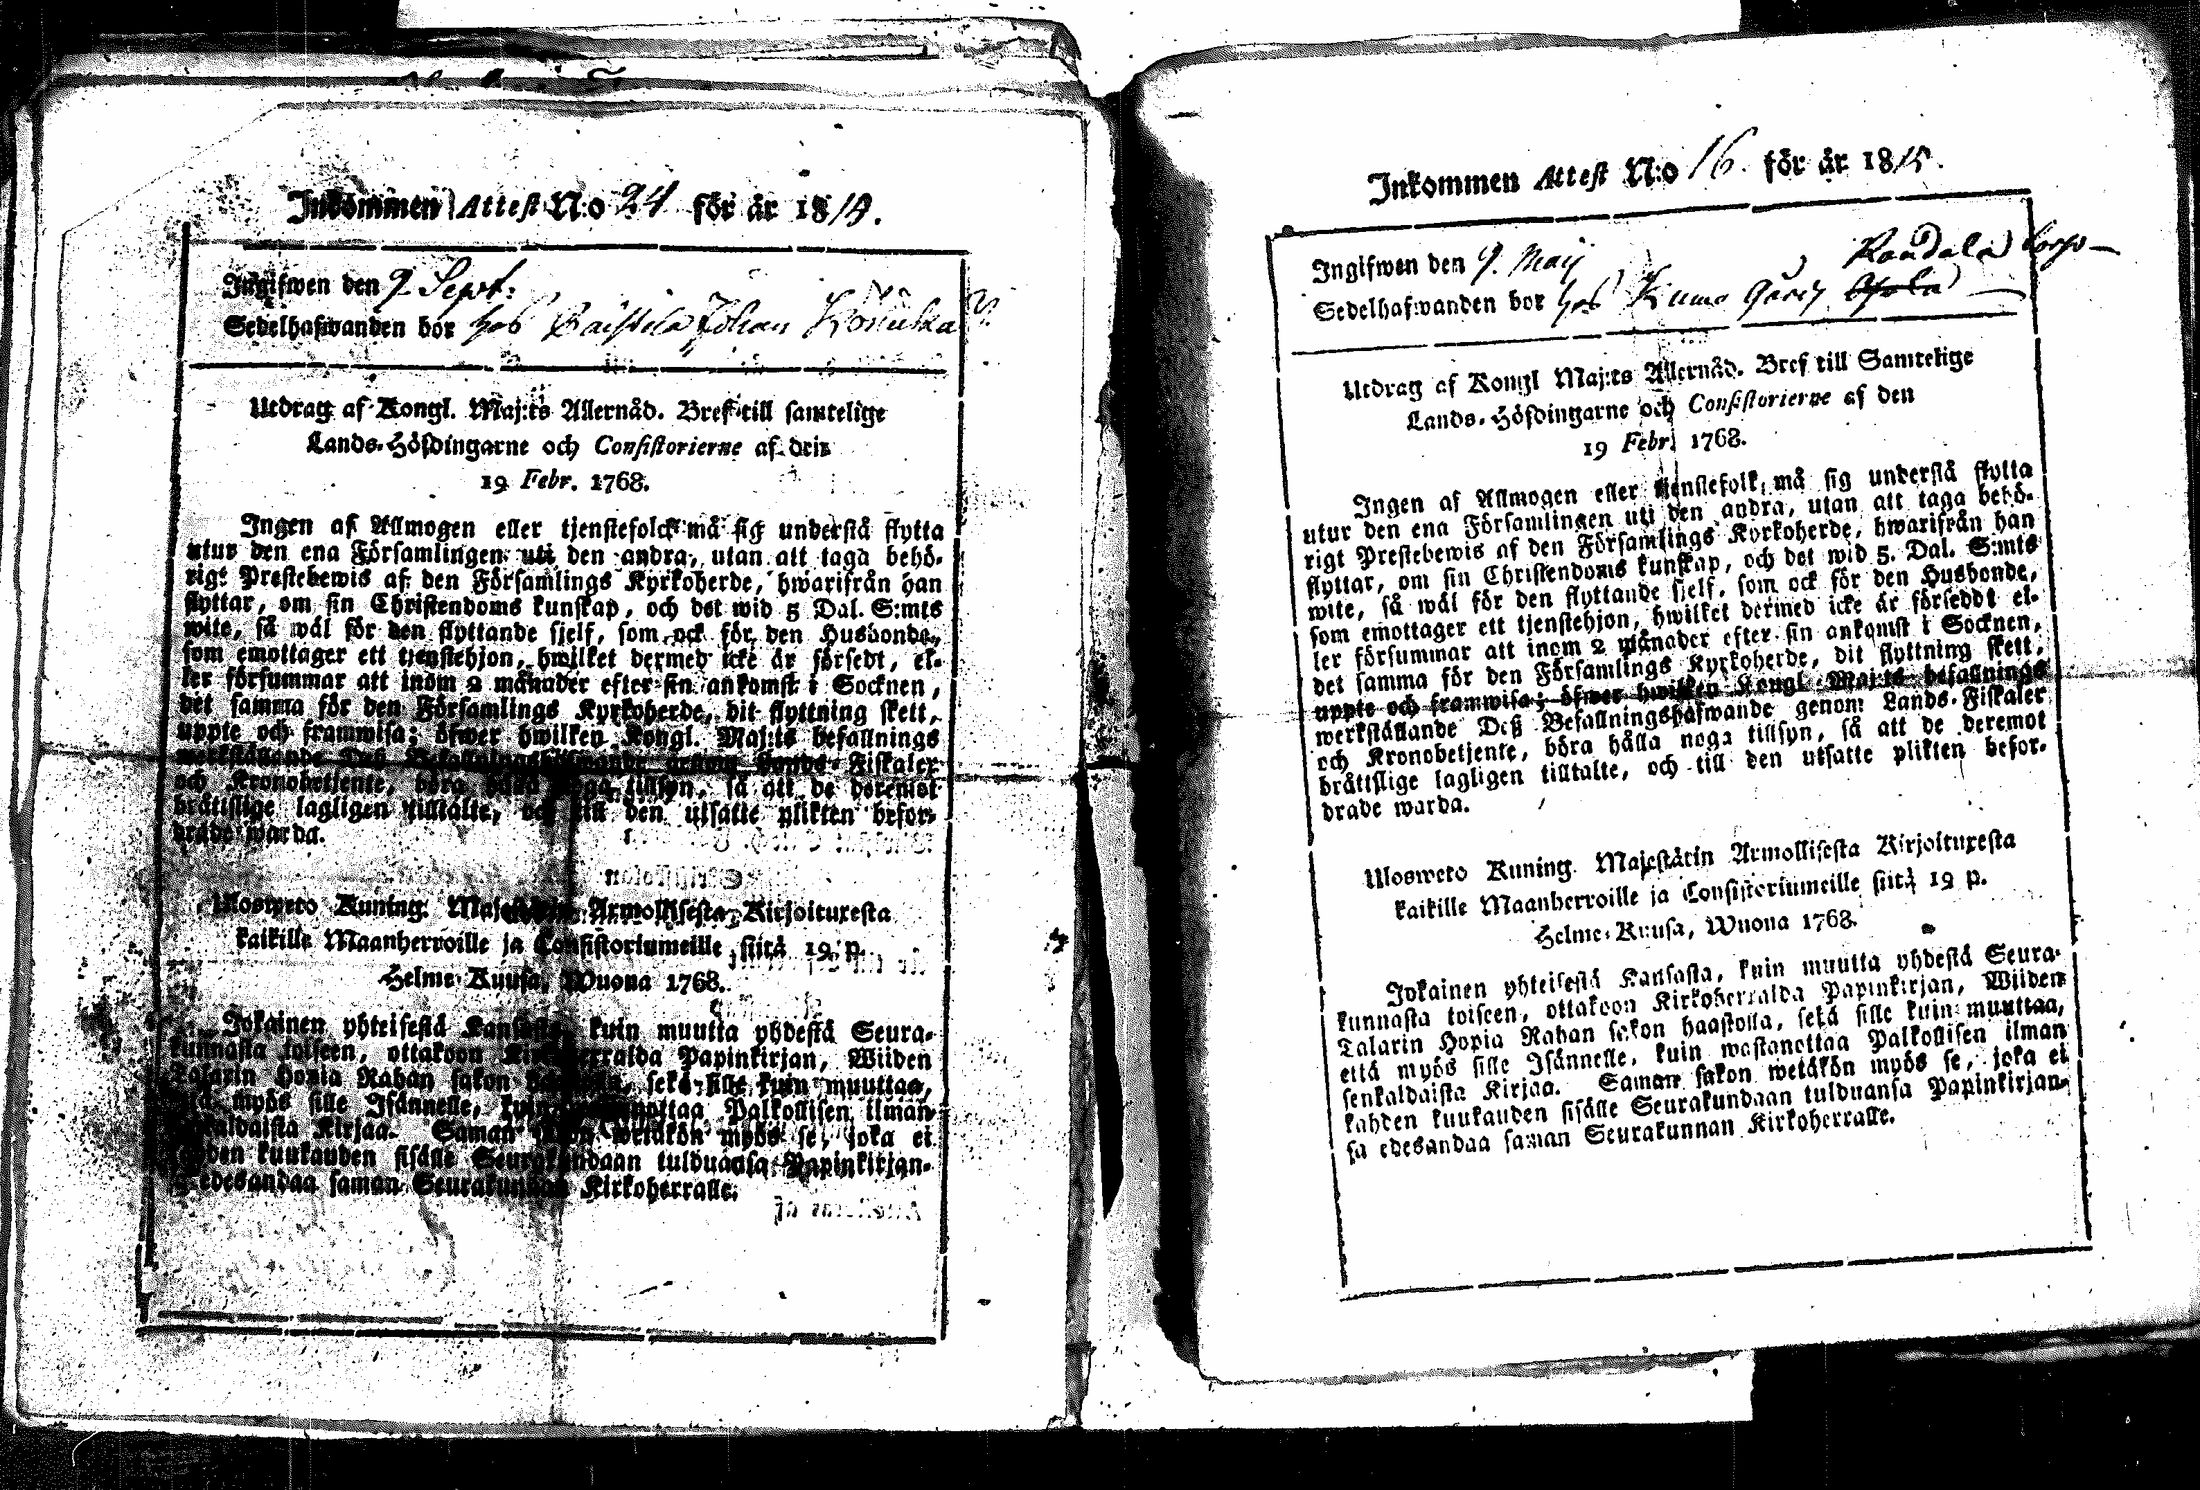 Inkommen Attest N:o 24 för år 1814.
Ingifwen den 9 Sept:
Sedelhafwanden bor hos Johan
Utdrag af Kongl. Maj:ts Allernåd. Bref till samtelige
Lands-Höfdingarne och Consistorierne af den
19 Febr. 1768.
Ingen af Allmogen eller tjenstefolck må sig understå flytta
utur den ena Församlingen uti den andra, utan att taga behö-
rigt Prestebewis af den Församlings Kyrkoherde, hwarifrån han
flyttar, om sin Christendoms kunskap, och det wid 5 Dal. S:mts
wite, så wäl för den flyttande sjelf, som ock för den Husbonde,
som emottager ett tjenstehjon, hwilket dermed icke är försedt, el-
ler försummar att inom 2 månader efter sin ankomst i Socknen,
det samma för den Församlings Kyrkoherde, dit flyttning skett,
uppte och framwisa; öfwer hwilken Kongl. Maj:ts befallnings
werkställande Deß Befallningshafwande genom Lands-Fiskaler
och Kronobetjente, böra hålla noga tillsyn, så att de deremot
bråttslige lagligen tilltalte, och till den utsatte plikten befor-
drade warda.
Ulosweto Kuning. Majestätin Armollisesta Kirjoituxesta
kaikille Maanherroille ja Consistoriumeille siitä 19 p.
Helme-Kuusa, Wuona 1768.
Jokainen yhteisestä Kansasta, kuin muutta yhdestä Seura-
kunnasta toiseen, ottakoon Kirkoherralda Papinkirjan, Wiiden
Talarin Hopia Rahan sakon haastolla, sekä sille kuin muuttaa,
että myös sille Isännelle, kuin wastanottaa Palkollisen ilman
senkaldaista Kirjaa. Saman sakon wetäkön myös se, joka ei
kahden kuukauden sisälle Seurakundaan tulduansa Papinkirjan-
sa edesandaa saman Seurakunnan Kirkoherralle.
Inkommen Attest N:o 16. för år 1815.
Ingifwen den 9. Maij
Sedelhafwanden bor hos
Utdrag af Kongl Maj:ts Allernåd. Bref till Samtelige
Lands-Höfdingarne och Consistorierne af den
19 Febr. 1768.
Ingen af Allmogen eller tjenstefolk, må sig understå flytta
utur den ena Församlingen uti den andra, utan att taga behö-
rigt Prestebewis af den Församlings Kyrkoherde, hwarifrån han
flyttar, om sin Christendoms kunskap, och det wid 5. Dal. S:mts
wite, så wäl för den flyttande sjelf, som ock för den Husbonde,
som emottager ett tjenstehjon, hwilket dermed icke är förseddt el-
ler försummar att inom 2 månader efter sin ankomst i Socknen,
det samma för den Församlings Kyrkoherde, dit flyttning skett,
uppte och framwisa; öfwer hwilken Kongl Maj:ts befallnings
werkställande Deß Befallningshafwande genom Lands-Fiskaler
och Kronobetjente, böra hålla noga tillsyn, så att de deremot
bråttslige lagligen tilltalte, och till den utsatte plikten befor-
drade warda.
Ulosweto Kuning. Majestätin Armollisesta Kirjoituxesta
kaikille Maanherroille ja Consistoriumeille siitä 19 p.
Helme-Kuusa, Wuona 1768.
Jokainen yhteisestä Kansasta, kuin muutta yhdestä Seura-
kunnasta toiseen, ottakoon Kirkoherralda Papinkirjan, Wiiden
Talarin Hopia Rahan sakon haastolla, sekä sille kuin muuttaa,
että myös sille Isännelle, kuin wastanottaa Palkollisen ilman
senkaldaista Kirjaa. Saman sakon wetäkön myös se, joka ei
kahden kuukauden sisälle Seurakundaan tulduansa Papinkirjan-
sa edesandaa saman Seurakunnan Kirkoherralle.